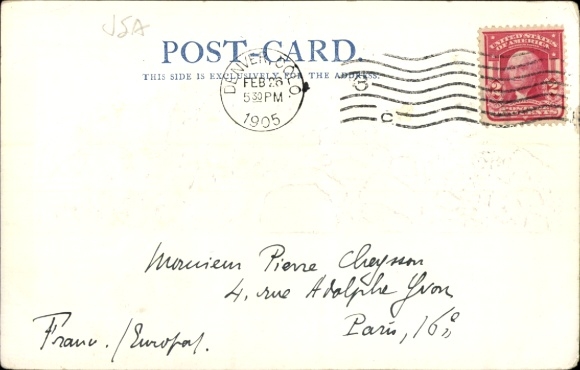 USA
POST CARD.
THIS SIDE IS EXCLUSIVELY FOR THE ADDRESS.
DENVER, COLO.
FEB 26
5 30 PM
1905
C
UNITED STATES
OF AMERICA
2 2
TWO CENTS
Monsieur Pierre Cheysson
4, rue Adolphe Yvon
Paris, 16e
Franc. / Europa.